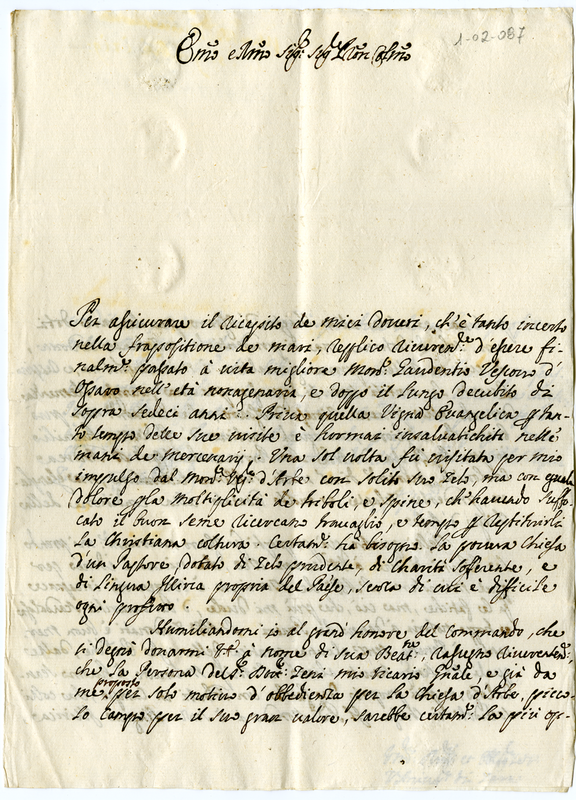 1-02-087.
Emo e Rmo Sigr: Sigr Pron Colmo
Per assicurare il ricapito de miei doveri, ch'è tanto incerto
nella frapositione de mari, replico riverente: d'essere fi-
nalmte: passato à vita migliore Monsr: Gaudentio Vescovo d'
Ossaro nell'età nonagenaria, e doppo il lungo decubito di
sopra sedeci anni. Priva quella Vigna Evangelica p tan-
to tempo delle sue visite è hormai insalvatichita nelle
mani de mercenarj. Una sol volta fù visitata per mio
impulso dal Monsr: Vescº: d'Arbe con solito suo Zelo, ma con qual
dolore p la moltiplicità de triboli, e spine, ch'havendo suffo-
cato il buon seme ricercano travaglio, e tempo p restituirli
la Christiana coltura. Certamte: hà bisogno la povera Chiesa
d'un Pastore dotato di Zelo prudente, di Charità sofferente, e
di Lingua Illirica propria del Paese, senza di cui è difficile
ogni profitto.
Humiliandomi io al grand' honore del commando, che
si degnò donarmi à nome di Sua Beatne, rassegno riverentemte:
che la Persona del Sr: Dor: Zen mio Vicario Gnale, e già da
me proposto per solo motivo d'obbedienza per la Chiesa d'Arbe, picco-
lo campo per il suo gran valore, sarebbe certamte: la più op-